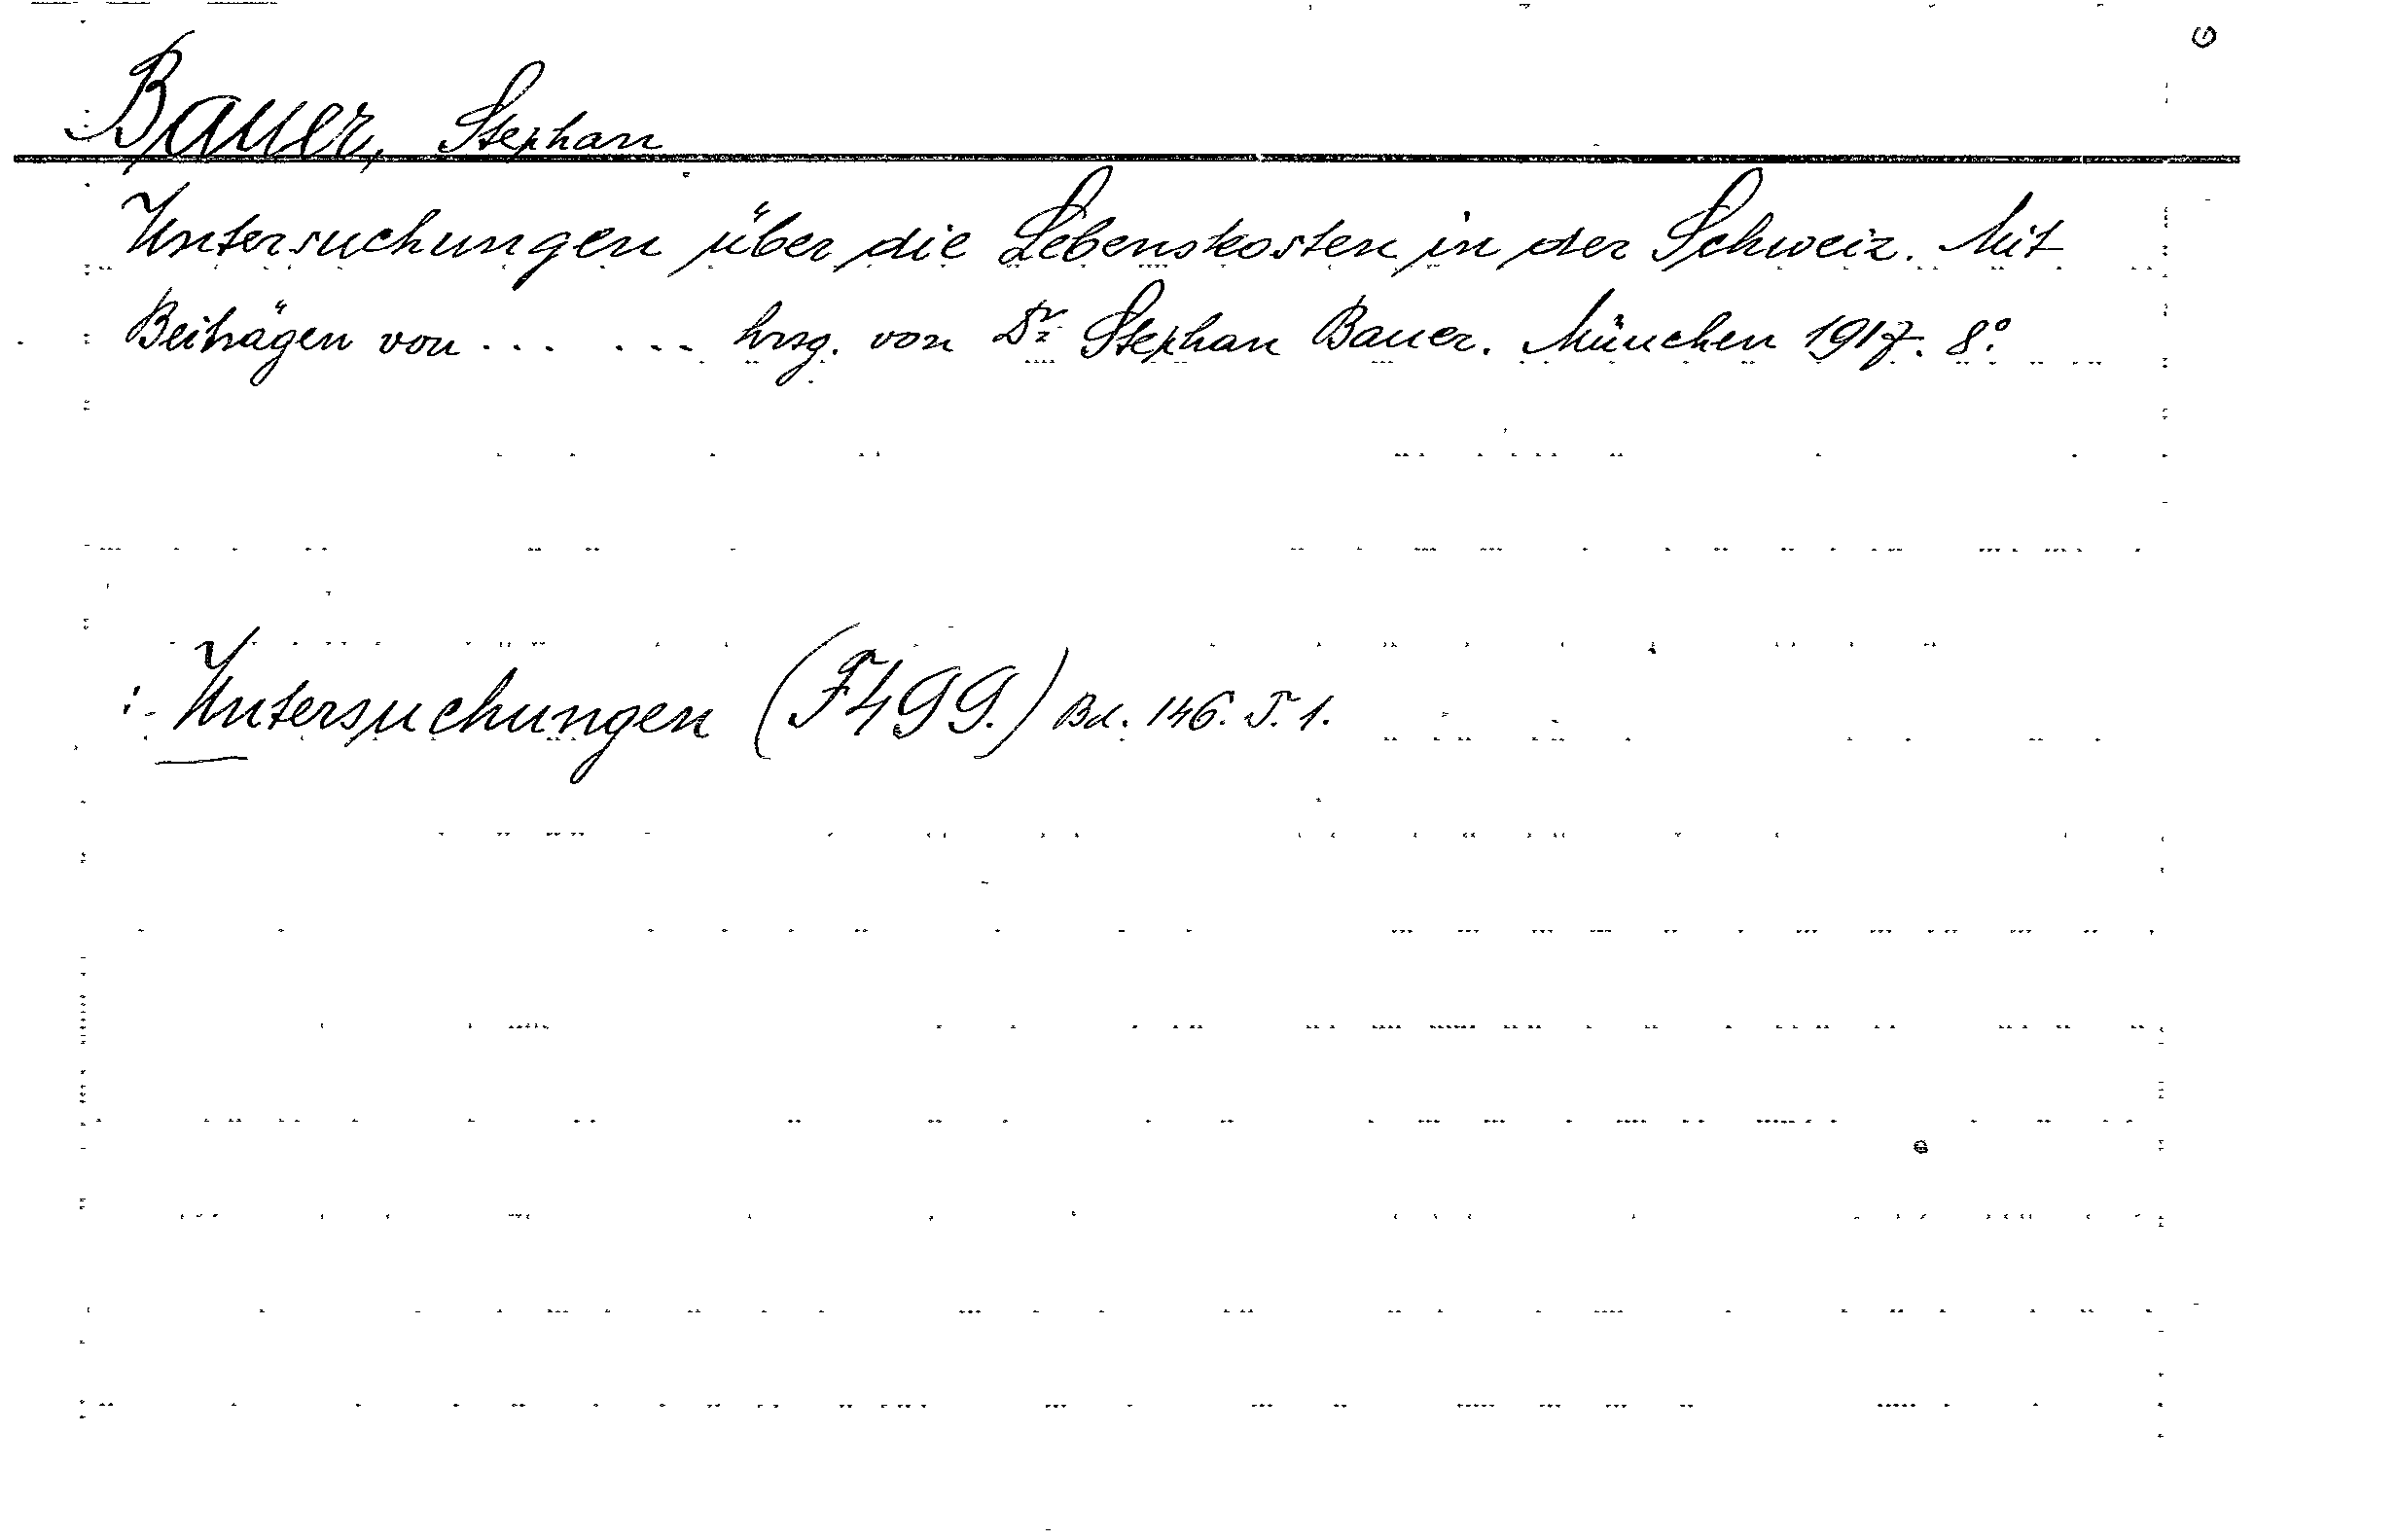 Bauer, Stephan
Untersuchungen über die Lebenskosten in der Schweiz. Mit
Beiträgen von ... ... hrsg. von Dr. Stephan Bauer. München 1917. 8°.
:- Untersuchungen (F499.) Bd. 146. T. 1.